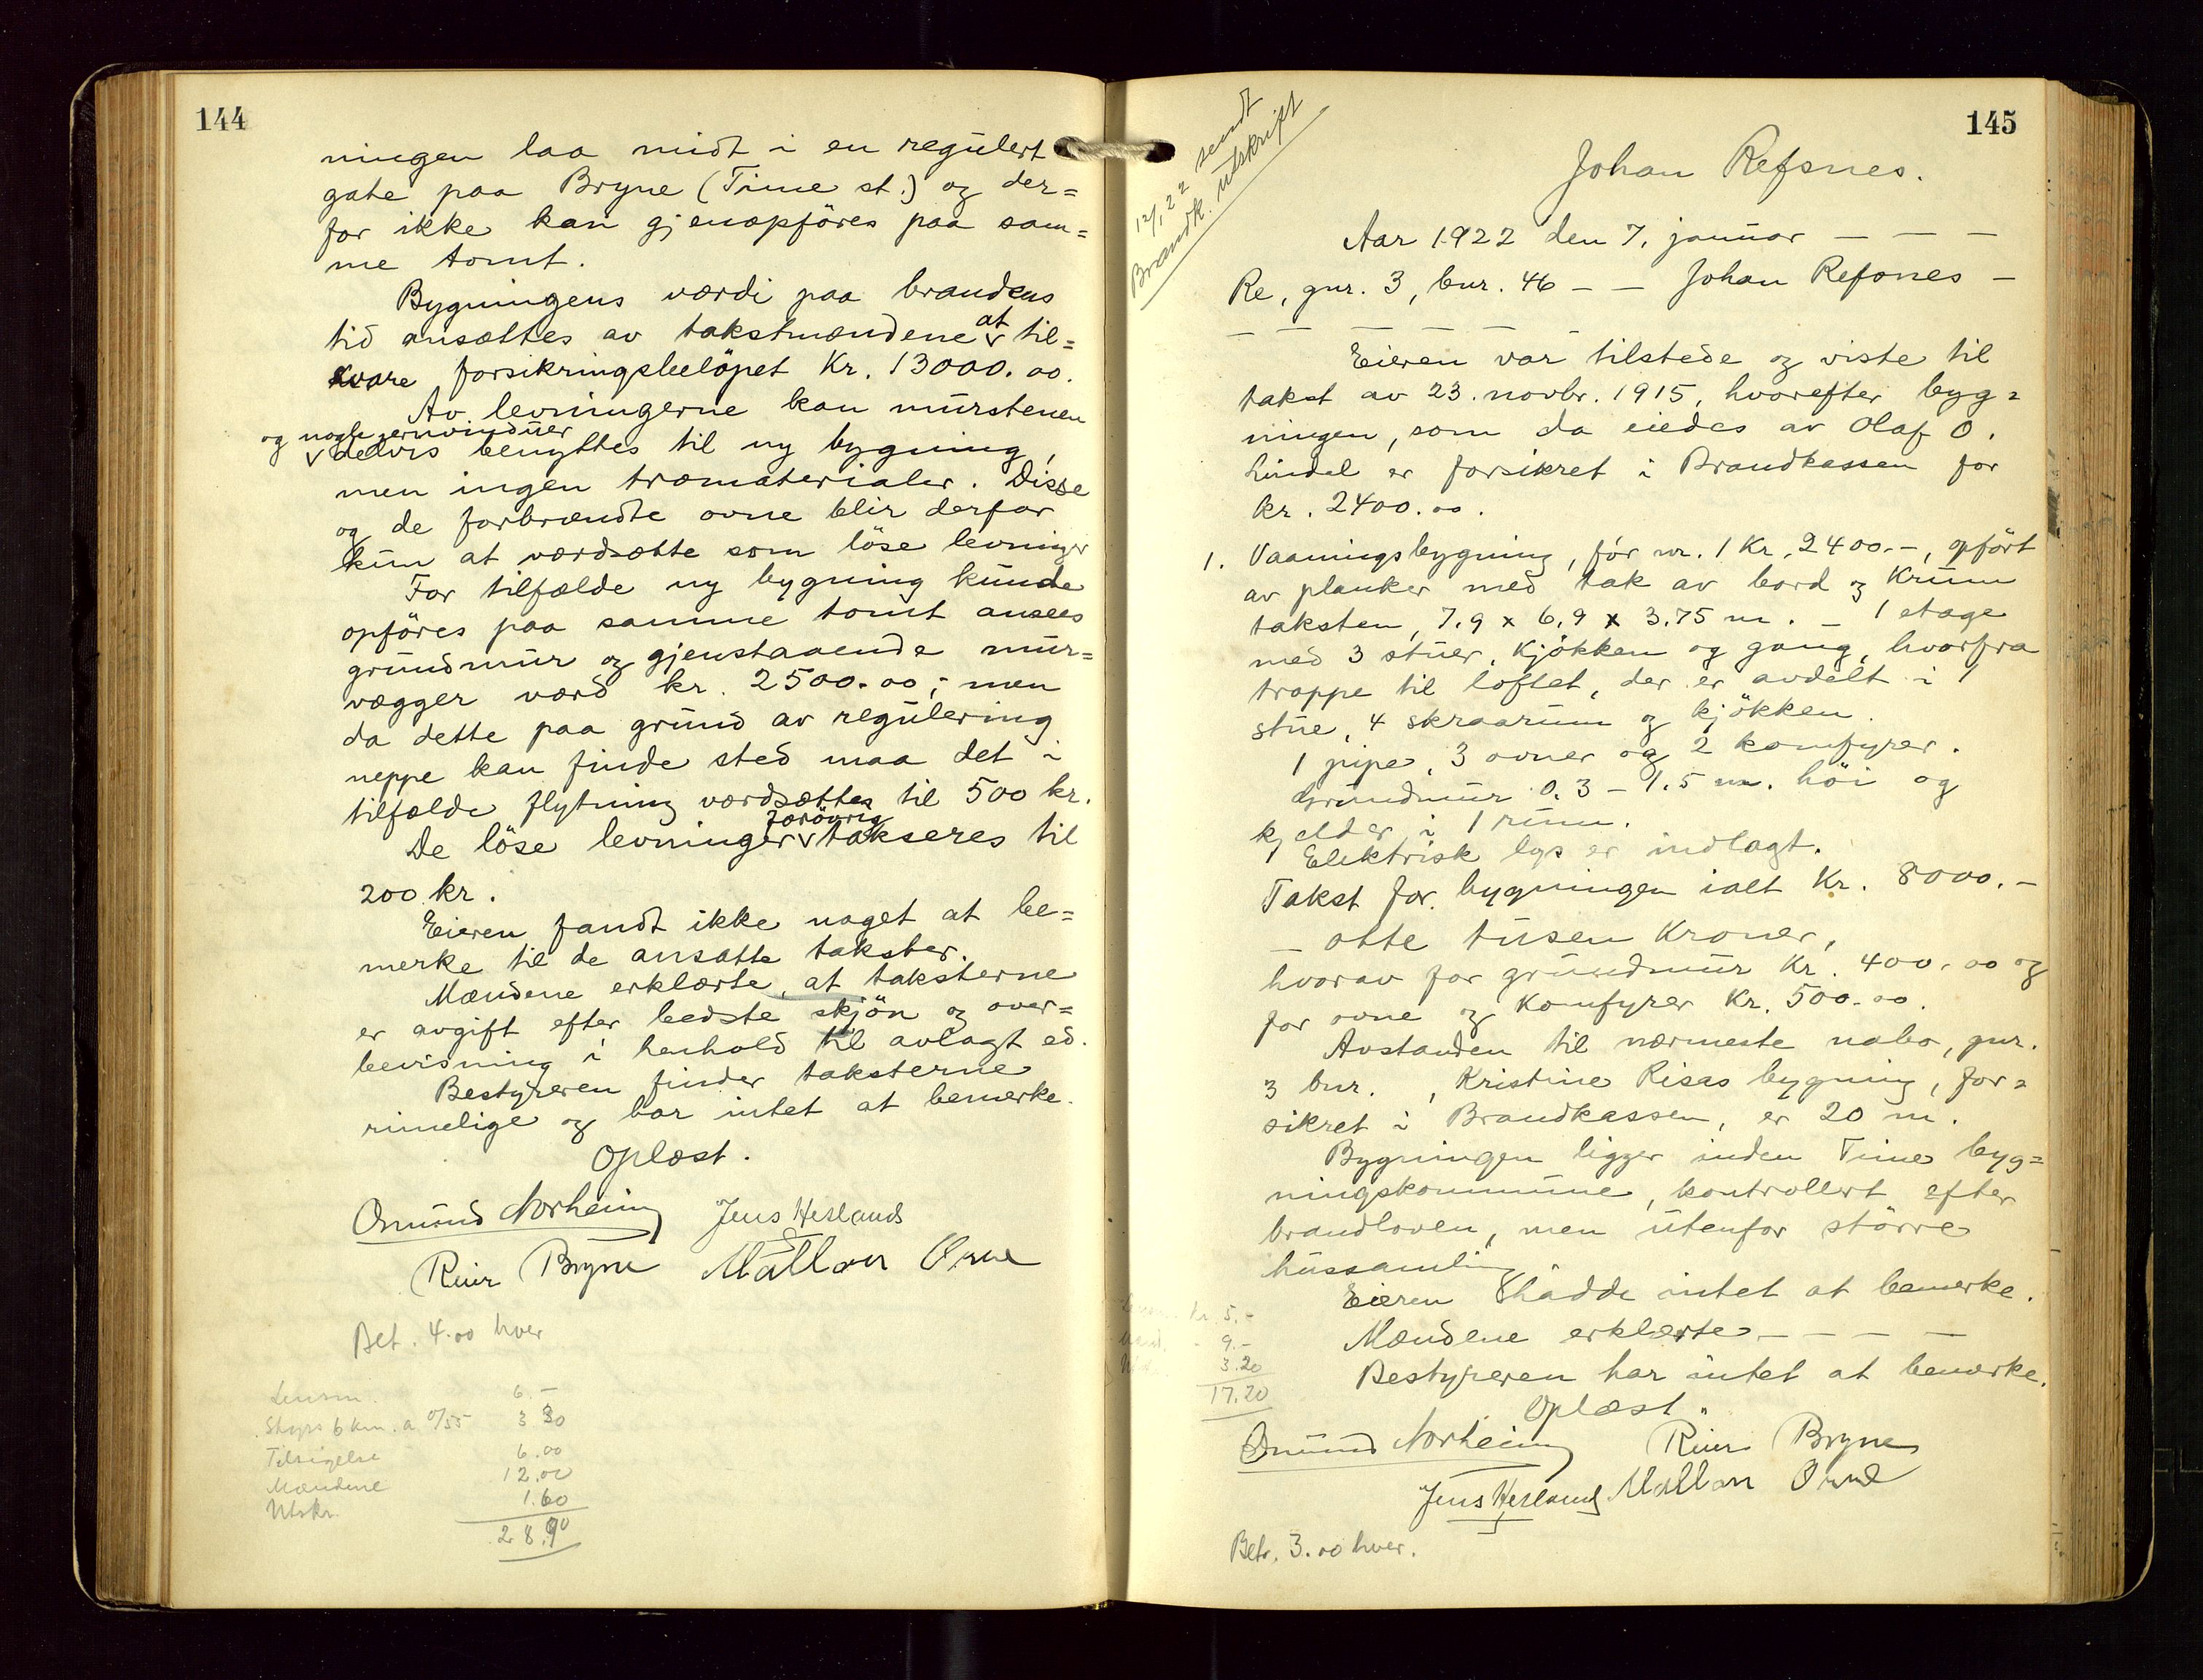 144
ningen laa midt i en regulert
gate paa Bryne (Time st.) og der=
for ikke kan gjenopföres paa sam=
me tomt.
Bygningens værdi paa brandens
tid ansættes av takstmændene at til=
svare forsikringsbelöpet Kr. 13000.00.
Av levningerne kan murstenen
og nogle jernvinduer
delvis benyttes til ny bygning,
men ingen træmaterialer. Disse
og de forbrændte ovne blir derfor
kun at værdsætte som löse levninger
For tilfælde ny bygning kunde
opföres paa samme tomt ansees
grundmur og gjenstaaende mur=
vægger værd kr. 2500.00; men
da dette paa grund av regulering
neppe kan finde sted maa det i
tilfælde flytning værdsættes til 500 kr.
De löse levninger forövrig takseres til
200 kr.
Eieren fandt ikke noget at be=
merke til de ansatte takster.
Mændene erklærte, at taksterne
er avgift efter bedste skjön og over=
bevisning i henhold til avlagt ed.
Bestyreren finder taksterne
rimelige og har intet at bemerke.
Oplæst.
Omund Norheim Jens Hetland
Reier Bryne Mallon Orre
Bet. 4.00 hver
Lensm. 6.-
Skyss 6 km. a 0/55 3 30
Tilsigelse 6.00
Mændene 12.00
Utskr. 1.60
28.90
145
12/1 22 sendt
Brandk. utskrift
Johan Refsnes.
Aar 1922 den 7. januar — — —
Re, gnr. 3, bnr. 46 — — Johan Refsnes —
— — — — — —
Eieren var tilstede og viste til
takst av 23. novbr. 1915, hvorefter byg=
ningen, som da eiedes av Olaf O.
Lindal er forsikret i Brandkassen for
kr. 2400.00.
1. Vaaningsbygning, för nr. 1 Kr. 2400.-, opfört
av planker med tak av bord og Krum
taksten, 7.9 x 6.9 x 3.75 m. — 1 etage
med 3 stuer, Kjökken og gang, hvorfra
trappe til loftet, der er avdelt i 1
stue, 4 skraarum og kjökken.
1 pipe, 3 ovner og 2 komfyrer.
Grundmur 0.3 - 1.5 m. höi og
kjelder i 1 rum.
Elektrisk lys er indlagt.
Takst for bygningen ialt Kr. 8000.-
— otte tusen Kroner,
hvorav for grundmur Kr. 400.00 og
for ovne og Komfyrer Kr. 500.00.
Avstanden til nærmeste nabo, gnr.
3 bnr. , Kristine Risas bygning, for=
sikret i Brandkassen, er 20 m.
Bygningen ligger inden Time byg=
ningskommune, kontrollert efter
brandloven, men utenfor större
hussamling
Eieren hadde intet at bemerke.
Mændene erklærte — — — —
Bestyreren har intet at bemerke.
Kr. 5.-
9.-
3.20
17.20
Oplæst.
Omund Norheim Reier Bryne
Jens Hetland Mallon Orre
Bet. 3.00 hver.